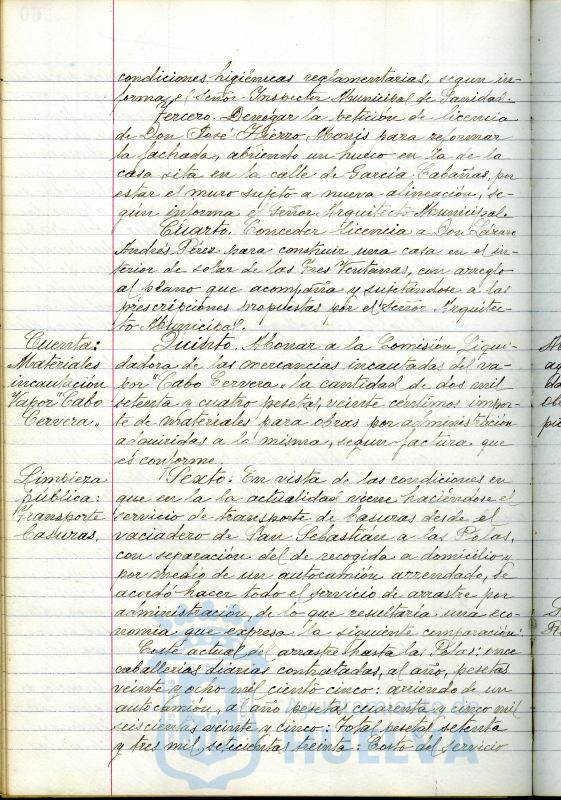 condiciones higiénicas reglamentarias, segun in-
forma el Señor Inspector Municipal de Sanidad.
Tercero. Denegar la petición de licencia
de Don José Hierro Monis para reformar
la fachada, abriendo un hueco en 7a de la
casa sita en la calle de Garcia Cabañas, por
estar el muro sujeto a nueva alineación, se-
gún informa el Señor Arquitecto Municipal.
Cuarto. Conceder licencia a Don Lázaro
Andrés Pérez para construir una casa en el in-
terior de solar de las Tres Ventanas, con arreglo
al plano que acompaña y sujetándose a las
prescripciones propuestas por el Señor Arquitec-
to Municipal.
Cuenta:
Materiales
incautación
Vapor "Cabo
Cervera".
Quinto. Abonar a la Comisión Liqui-
dadora de las mercancias incautadas del va-
por "Cabo Cervera" la cantidad de dos mil
setenta y cuatro pesetas, veinte céntimos impor-
te de materiales para obras por administración
adquiridas a la misma, segun factura que
es conforme.
Limpieza
pública:
Transporte
basuras.
Sexto. En vista de las condiciones en
que en la la actualidad viene haciéndose el
servicio de transporte de basuras desde el
vaciadero de San Sebastián a las Polas,
con separación del de recogida a domicilio y
por medio de un autocamión arrendado, se
acordó hacer todo el servicio de arrastre por
administración, de lo que resultaría una eco-
nomia que expresa la siguiente comparación:
Coste actual del arrastre hasta las Polas: once
caballerias diarias contratadas, al año, pesetas
veinte y ocho mil ciento cinco: arriendo de un
autocamión, al año pesetas cuarenta y cinco mil
seiscientas veinte y cinco: Total pesetas setenta
y tres mil, setecientas treinta: Costo del servicio
HUELVA